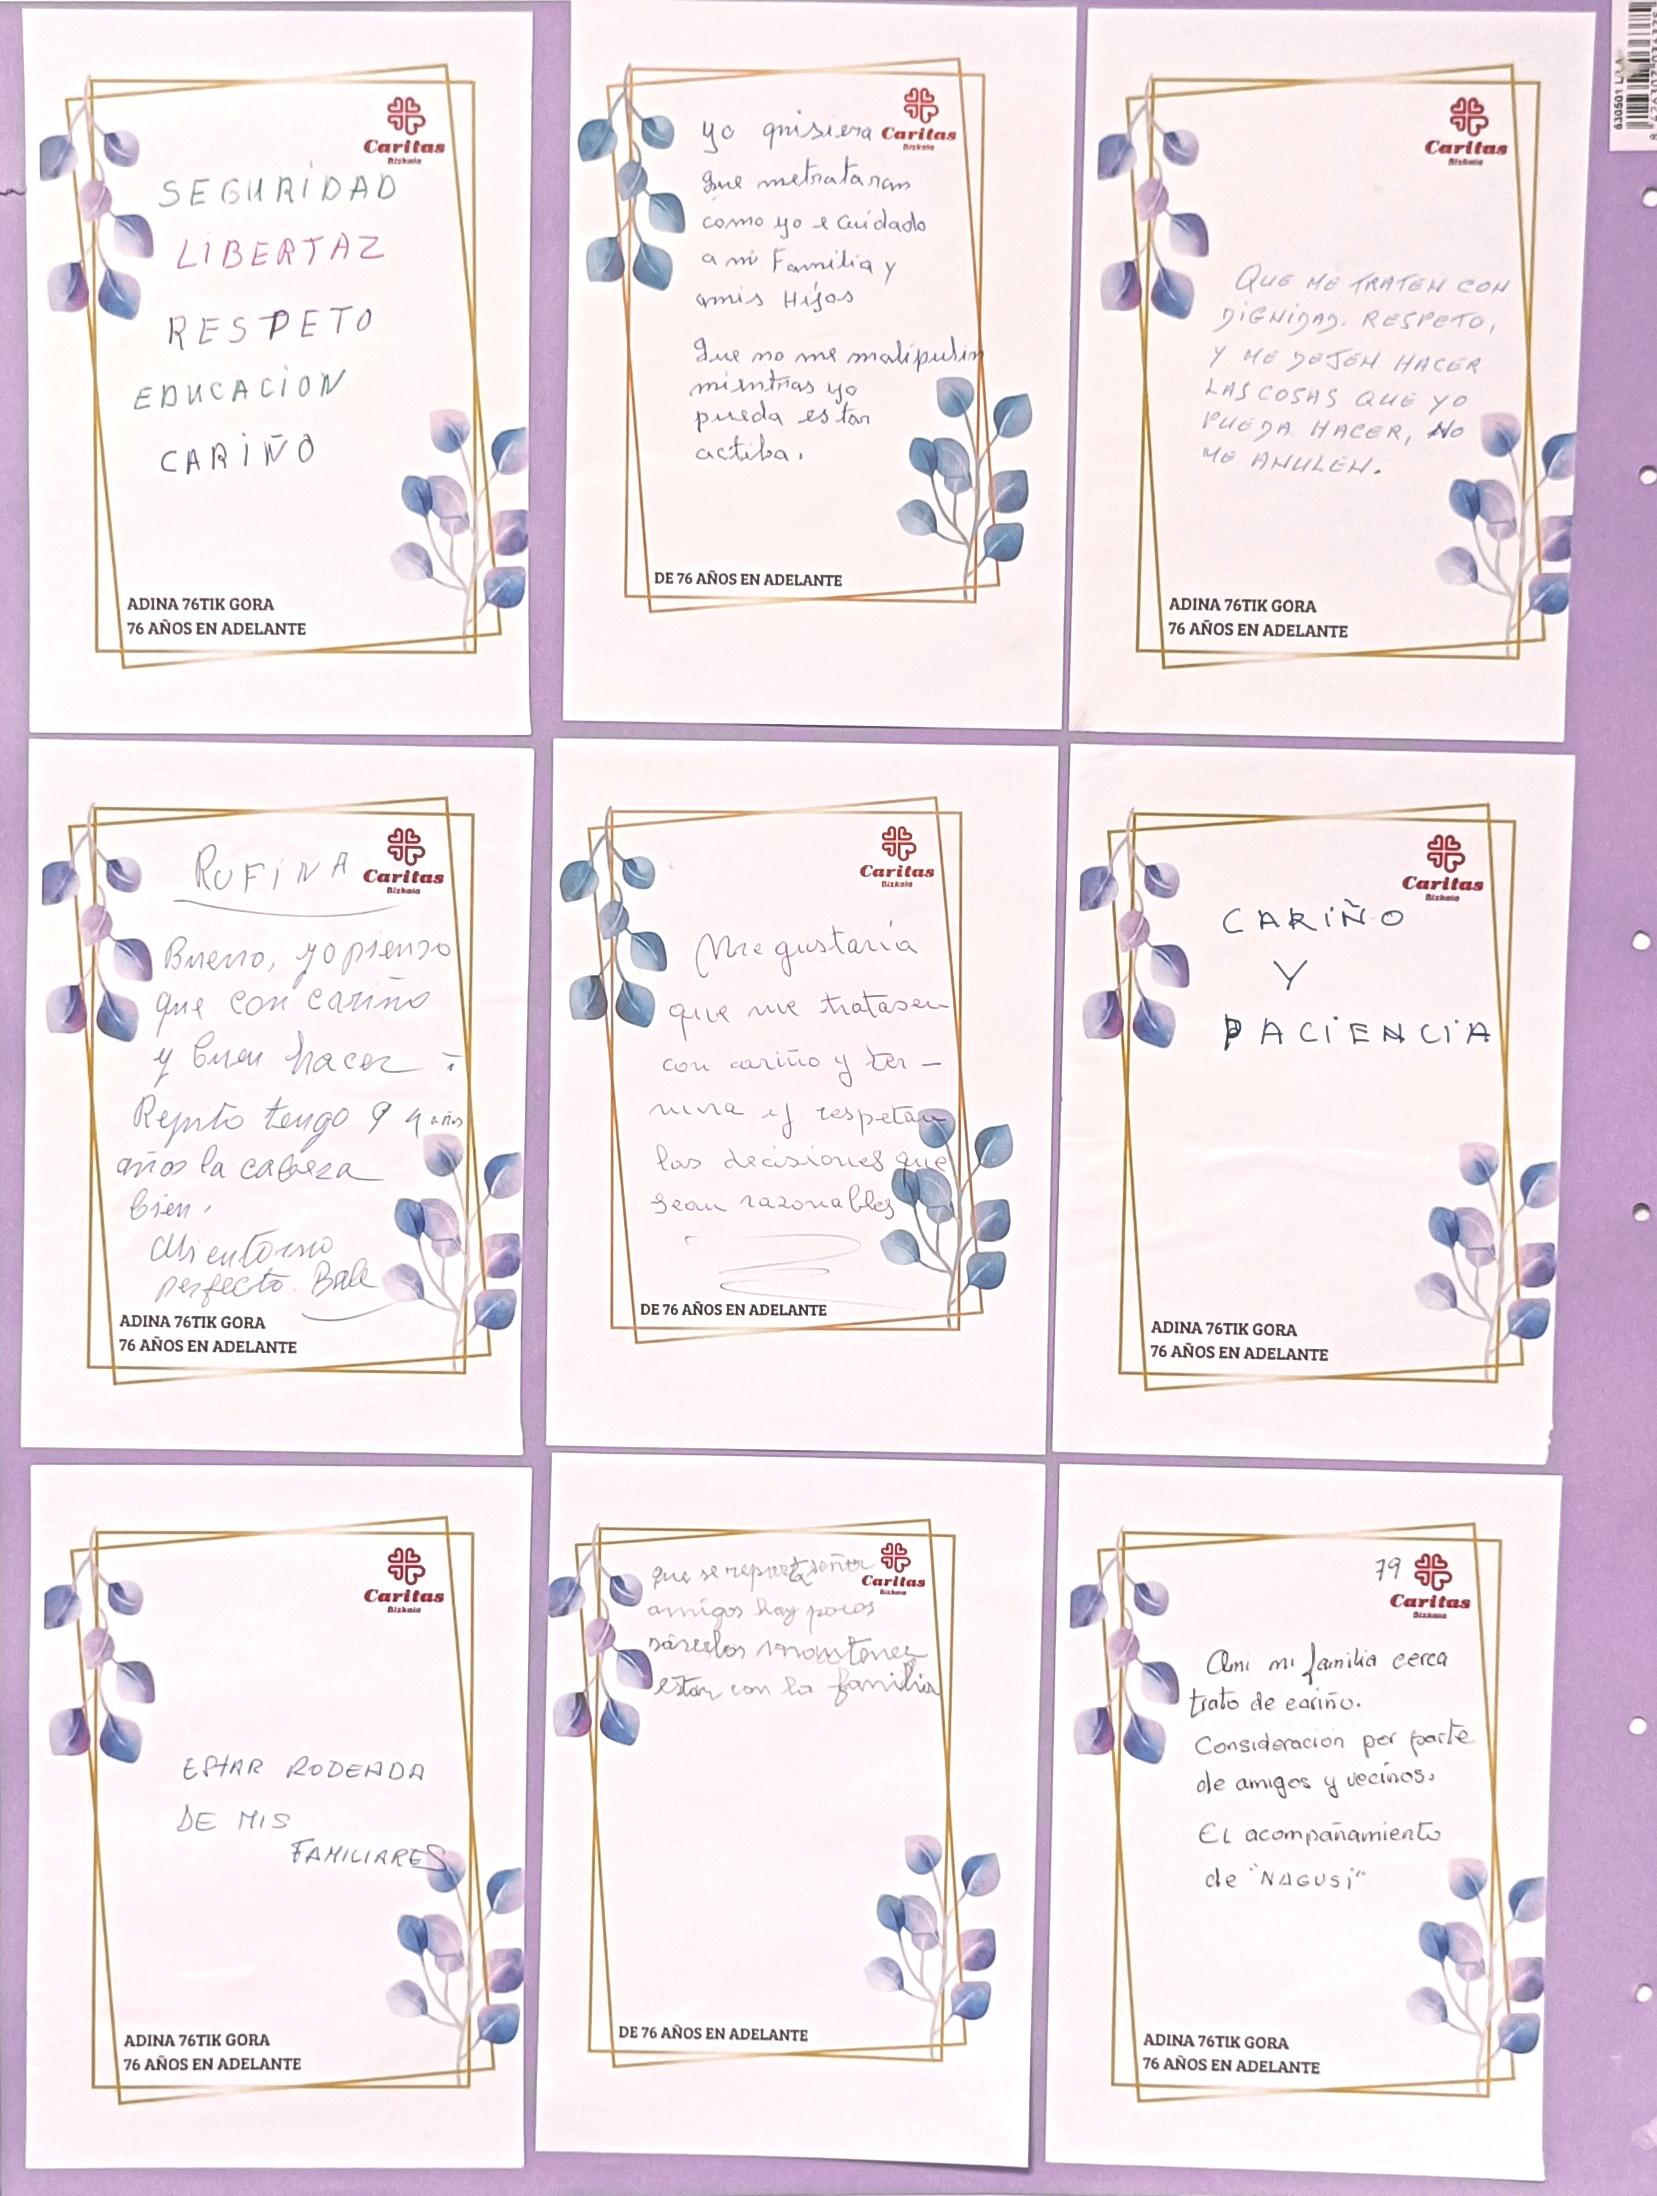 Caritas
Bizkaia
SEGURIDAD
LIBERTAZ
RESPETO
EDUCACION
CARIÑO
ADINA 76TIK GORA
76 AÑOS EN ADELANTE
Caritas
Bizkaia
yo quisiera
que metrataran
como yo e cuidado
a mi Familia y
amis Hijos
Que no me malipulin
mientras yo
pueda estar
actiba.
DE 76 AÑOS EN ADELANTE
Caritas
Bizkaia
QUE ME TRATEN CON
DIGNIDAD. RESPETO,
Y ME DEJEN HACER
LAS COSAS QUE YO
PUEDA HACER, NO
ME ANULEN.
ADINA 76TIK GORA
76 AÑOS EN ADELANTE
RUFINA
Caritas
Bizkaia
Bueno, yo pienso
que con cariño
y buen hacer
Repito tengo 94 años
años la cabeza
bien.
Mi entorno
perfecto. Bale
ADINA 76TIK GORA
76 AÑOS EN ADELANTE
Caritas
Bizkaia
Me gustaría
que me tratasen
con cariño y ter-
nura y respetan
las decisiones que
sean razonables
DE 76 AÑOS EN ADELANTE
Caritas
Bizkaia
CARIÑO
Y
PACIENCIA
ADINA 76TIK GORA
76 AÑOS EN ADELANTE
Caritas
Bizkaia
ESTAR RODEADA
DE MIS
FAMILIARES
ADINA 76TIK GORA
76 AÑOS EN ADELANTE
Caritas
Bizkaia
que se
amigos hay pocos
mantener
estar con la familia
DE 76 AÑOS EN ADELANTE
79
Caritas
Bizkaia
Ami mi familia cerca
trato de cariño.
Consideración por parte
de amigos y vecinos.
EL acompañamiento
de "NAGUSI"
ADINA 76TIK GORA
76 AÑOS EN ADELANTE